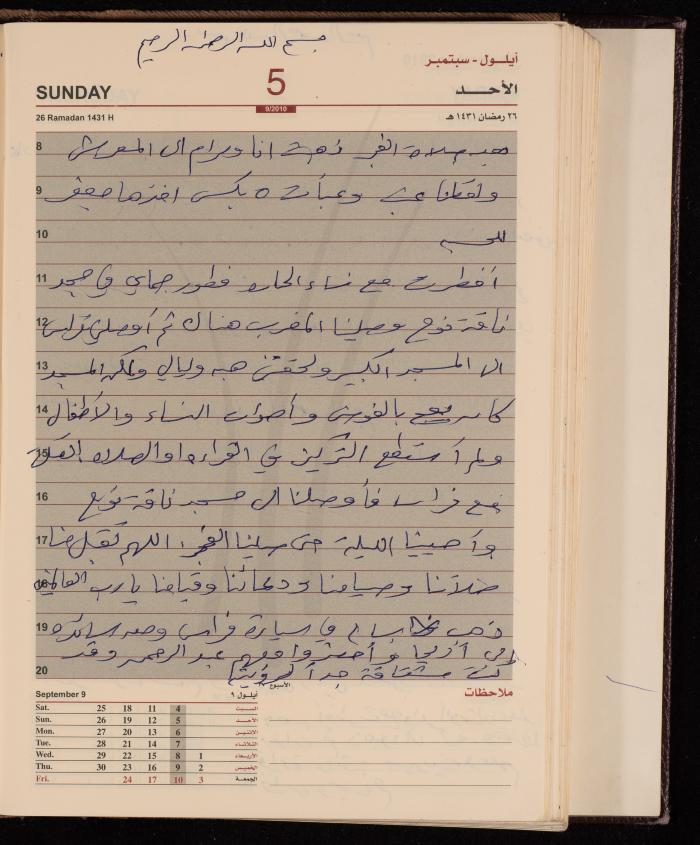 بسم الله الرحمن الرحيم
أيلول - سبتمبر
SUNDAY
5
الأحد
9/2010
26 Ramadan 1431 H
٢٦ رمضان ١٤٣١ هـ
8 بعد صلاة الفجر ذهبت انا ومرام الى المعرش
9 ولقطنا عنب وعبأت ٥ بكس
10
11 أفطرت مع نساء الحاره فطور جماعي في مسجد
12 ناقة نوح وصلينا المغرب هناك ثم أوصلني فراس
13 الى المسجد الكبير ولحقتني هبه وليالي ولكن المسجد
14 كان يعج بالفوضى وأصوات النساء والأطفال
15 ولم أستطع التركيز في القراءه او الصلاه
16 مع فراس فأوصلنا الى مسجد ناقة نوح
17 وأحيينا الليلة حتى صلينا الفجر اللهم تقبل منا
18 صلاتنا وصيامنا ودعائنا وقيامنا يارب العالمين
19 ذهب في سيارة فراس ومعه سائده
الى أريحا و عبد الرحمن وقد
20 كنت مشتاقة جداً لرؤيتها
September 9
أيلول ٩
الأسبوع
ملاحظات
Sat. 25 18 11 4 السبت
Sun. 26 19 12 5 الأحد
Mon. 27 20 13 6 الاثنين
Tue. 28 21 14 7 الثلاثاء
Wed. 29 22 15 8 1 الأربعاء
Thu. 30 23 16 9 2 الخميس
Fri. 24 17 10 3 الجمعة